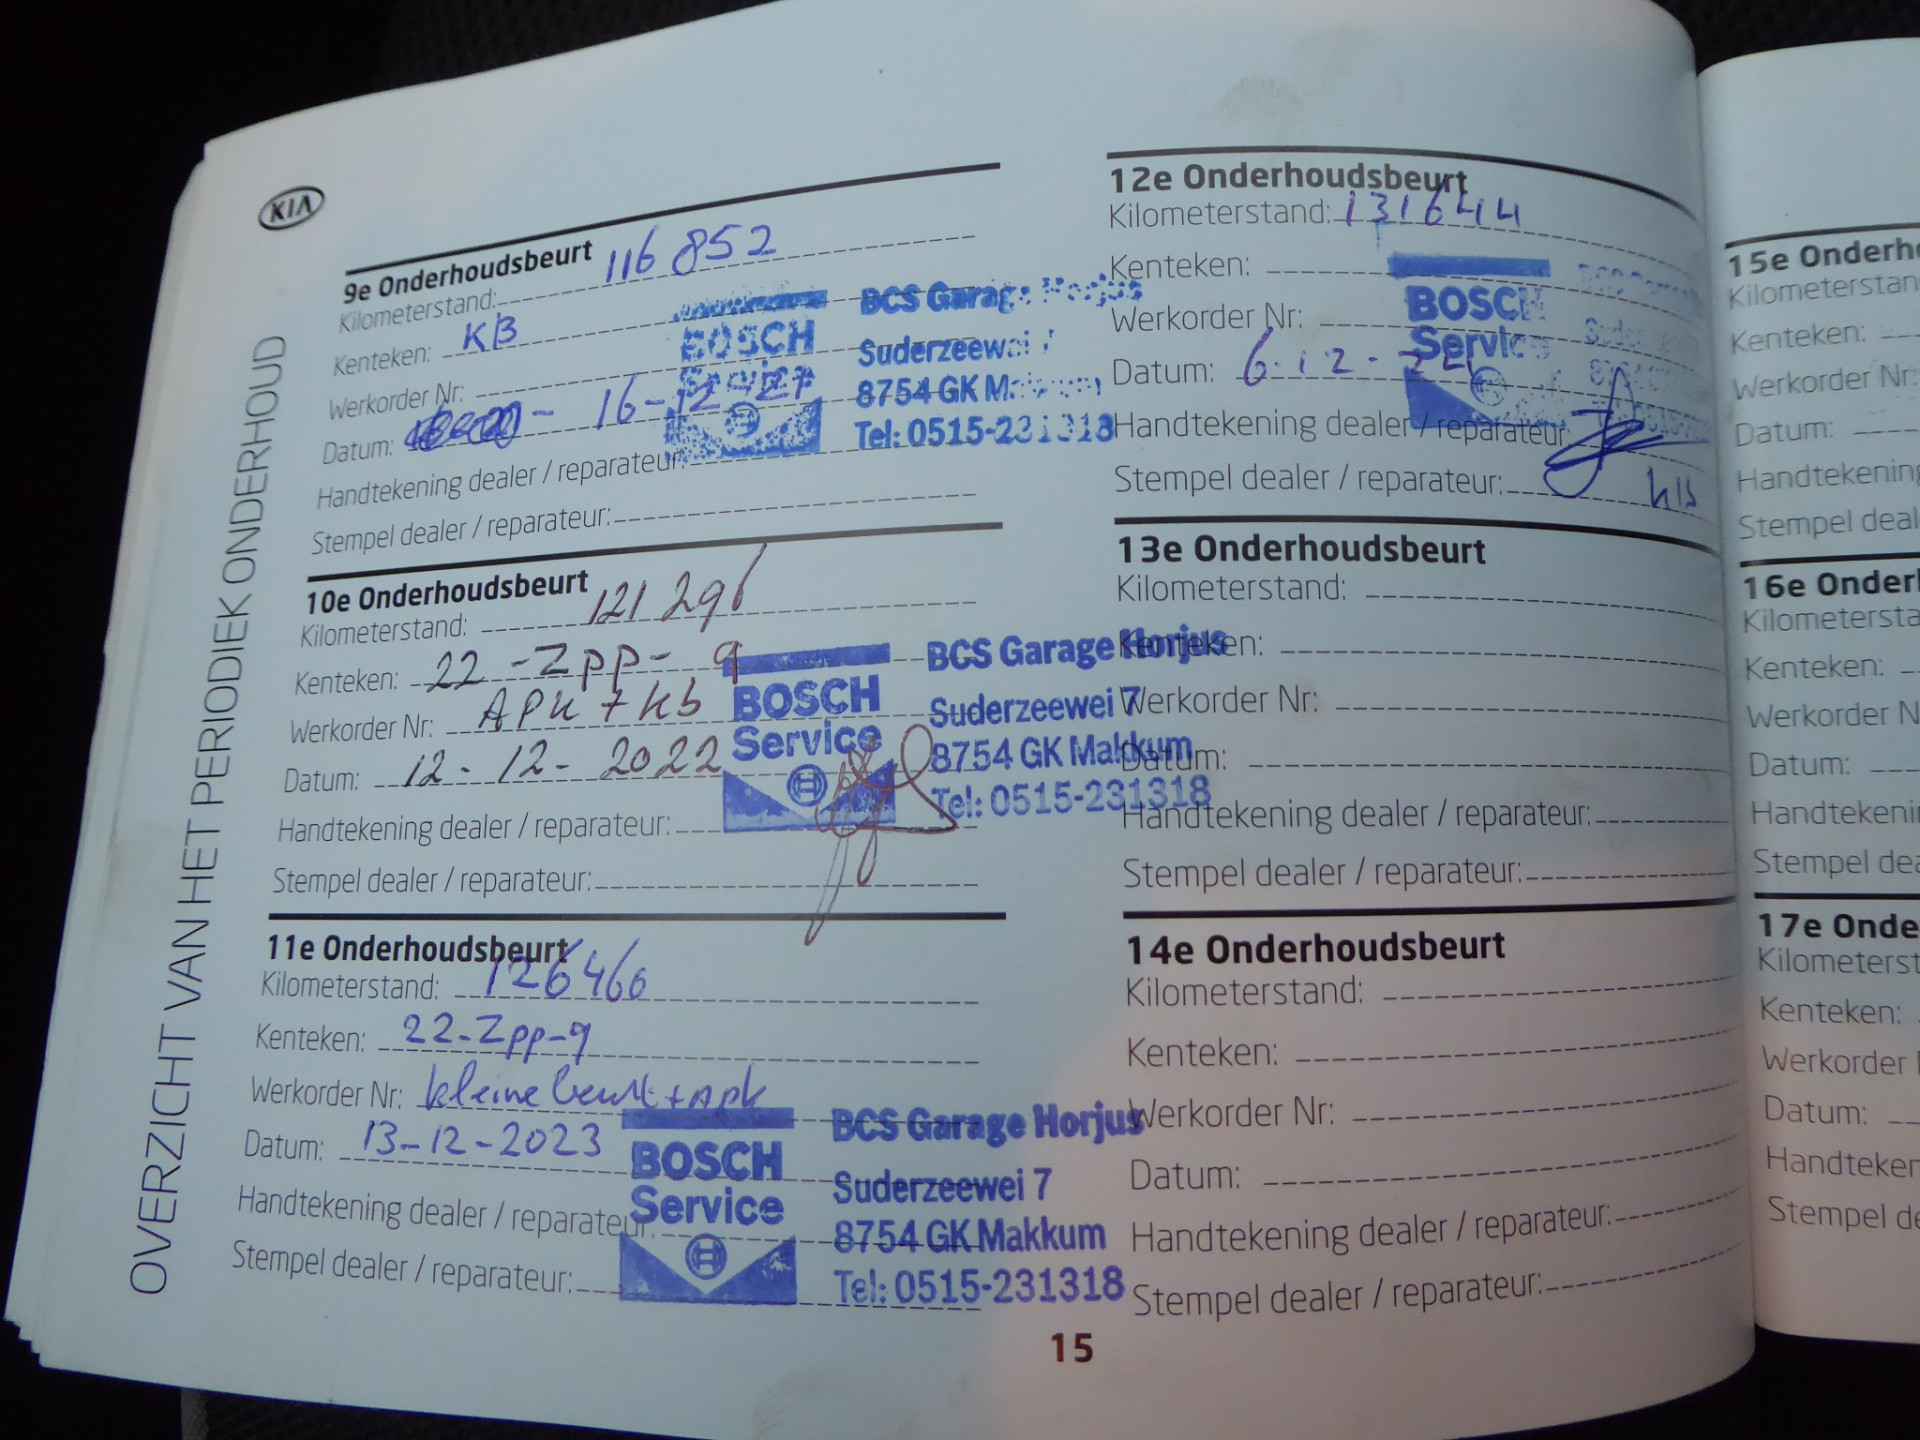 KIA
OVERZICHT VAN HET PERIODIEK ONDERHOUD
9e Onderhoudsbeurt
Kilometerstand: 116 852
Kenteken: KB
Werkorder Nr:
Datum: - 16-12-
Handtekening dealer / reparateur:
Stempel dealer / reparateur:
BOSCH
Service
BCS Garage Horjus
Suderzeewei 7
8754 GK M
Tel: 0515-231318
10e Onderhoudsbeurt
Kilometerstand: 121 296
Kenteken: 22-Zpp-9
Werkorder Nr: APK + kb
Datum: 12-12-2022
Handtekening dealer / reparateur:
Stempel dealer / reparateur:
BOSCH
Service
BCS Garage Horjus
Suderzeewei 7
8754 GK Makkum
Tel: 0515-231318
11e Onderhoudsbeurt
Kilometerstand: 126460
Kenteken: 22-Zpp-9
Werkorder Nr: kleine beurt + Apk
Datum: 13-12-2023
Handtekening dealer / reparateur:
Stempel dealer / reparateur:
BOSCH
Service
BCS Garage Horjus
Suderzeewei 7
8754 GK Makkum
Tel: 0515-231318
12e Onderhoudsbeurt
Kilometerstand: 131644
Kenteken:
Werkorder Nr:
Datum: 6-12-24
Handtekening dealer / reparateur:
Stempel dealer / reparateur:
BOSCH
Service
13e Onderhoudsbeurt
Kilometerstand:
Kenteken:
Werkorder Nr:
Datum:
Handtekening dealer / reparateur:
Stempel dealer / reparateur:
14e Onderhoudsbeurt
Kilometerstand:
Kenteken:
Werkorder Nr:
Datum:
Handtekening dealer / reparateur:
Stempel dealer / reparateur:
15
15e Onderho
Kilometerstan
Kenteken:
Werkorder Nr:
Datum:
Handtekening
Stempel deal
16e Onder
Kilometersta
Kenteken:
Werkorder N
Datum:
Handtekeni
Stempel dea
17e Onde
Kilometerst
Kenteken:
Werkorder
Datum:
Handteken
Stempel de